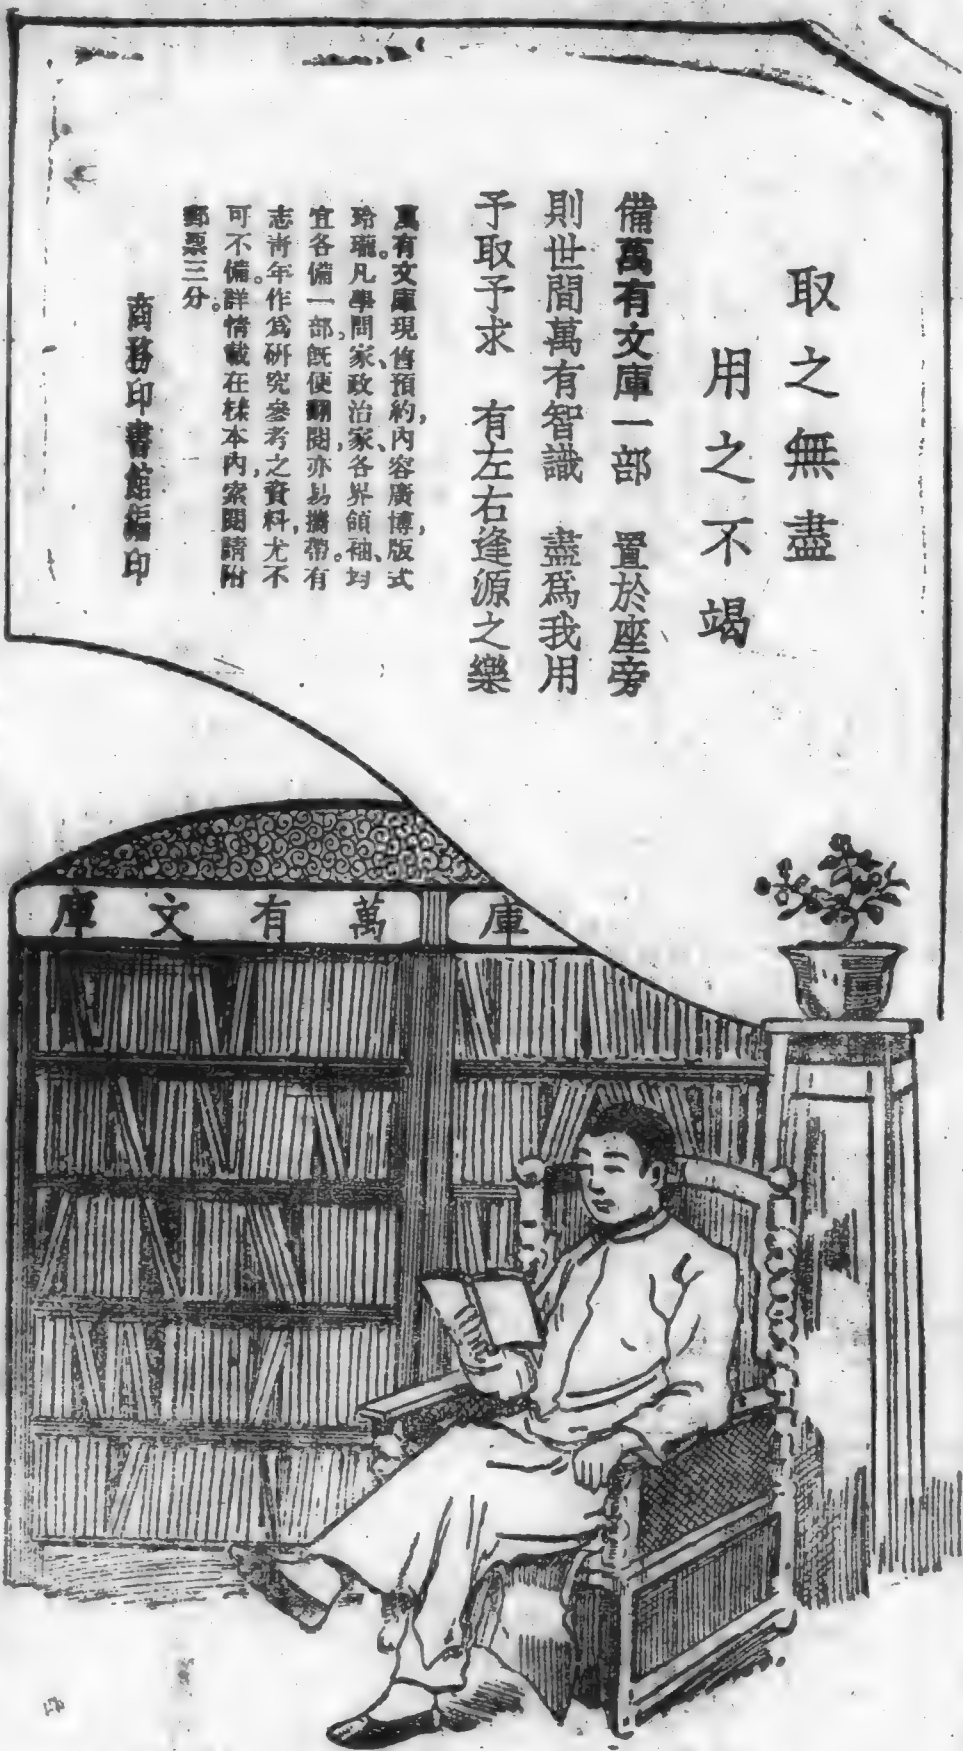 取之無盡
用之不竭
備萬有文庫一部　置於座旁
則世間萬有智識　盡爲我用
予取予求　有左右逢源之樂
萬有文庫現售預約，內容廣博，版式
玲瓏。凡學問家、政治家、各界領袖，均
宜各備一部，旣便翻閱，亦易攜帶。有
志靑年作爲硏究參考之資料，尤不
可不備。詳情載在樣本內，索閱請附
郵票三分。
商務印書館編印
庫
庫文有萬